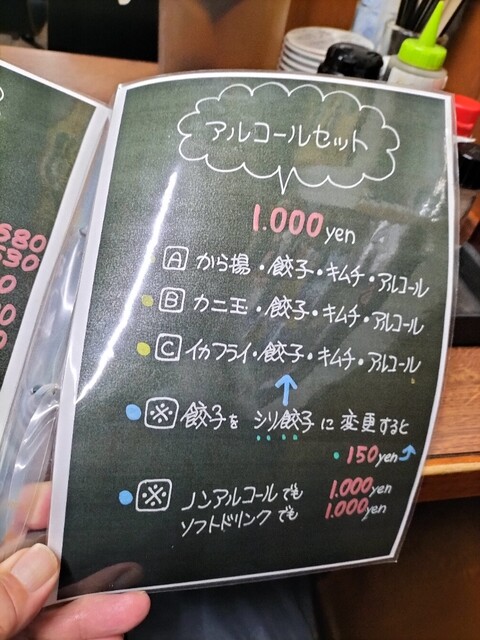 アルコールセット
1.000yen
A から揚・餃子・キムチ・アルコール
B カニ玉・餃子・キムチ・アルコール
C イカフライ・餃子・キムチ・アルコール
↑
※ 餃子を シソ餃子に変更すると
150yen↑
※ ノンアルコールでも 1.000yen
ソフトドリンクでも 1.000yen
680